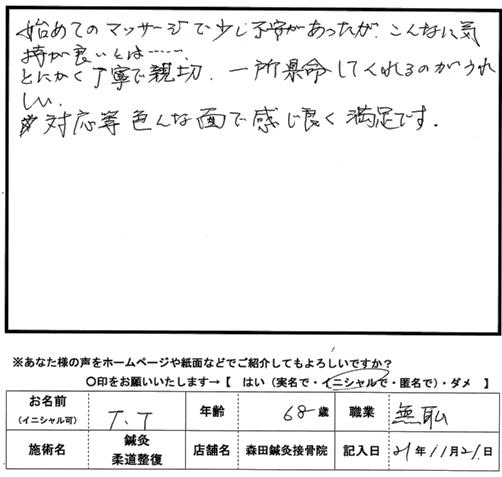 始めてのマッサージで少し不安があったが、こんなに気
持が良いとは……、
とにかく丁寧で親切、一所県命してくれるのがうれ
しい、
対応等色んな面で感じ良く満足です。
※あなた様の声をホームページや紙面などでご紹介してもよろしいですか？
〇印をお願いいたします→【 はい（実名で・イニシャルで・匿名で）・ダメ 】
お名前（イニシャル可） T.T 年齢 68歳 職業 無職
施術名 鍼灸 柔道整復 店舗名 森田鍼灸接骨院 記入日 21年11月21日